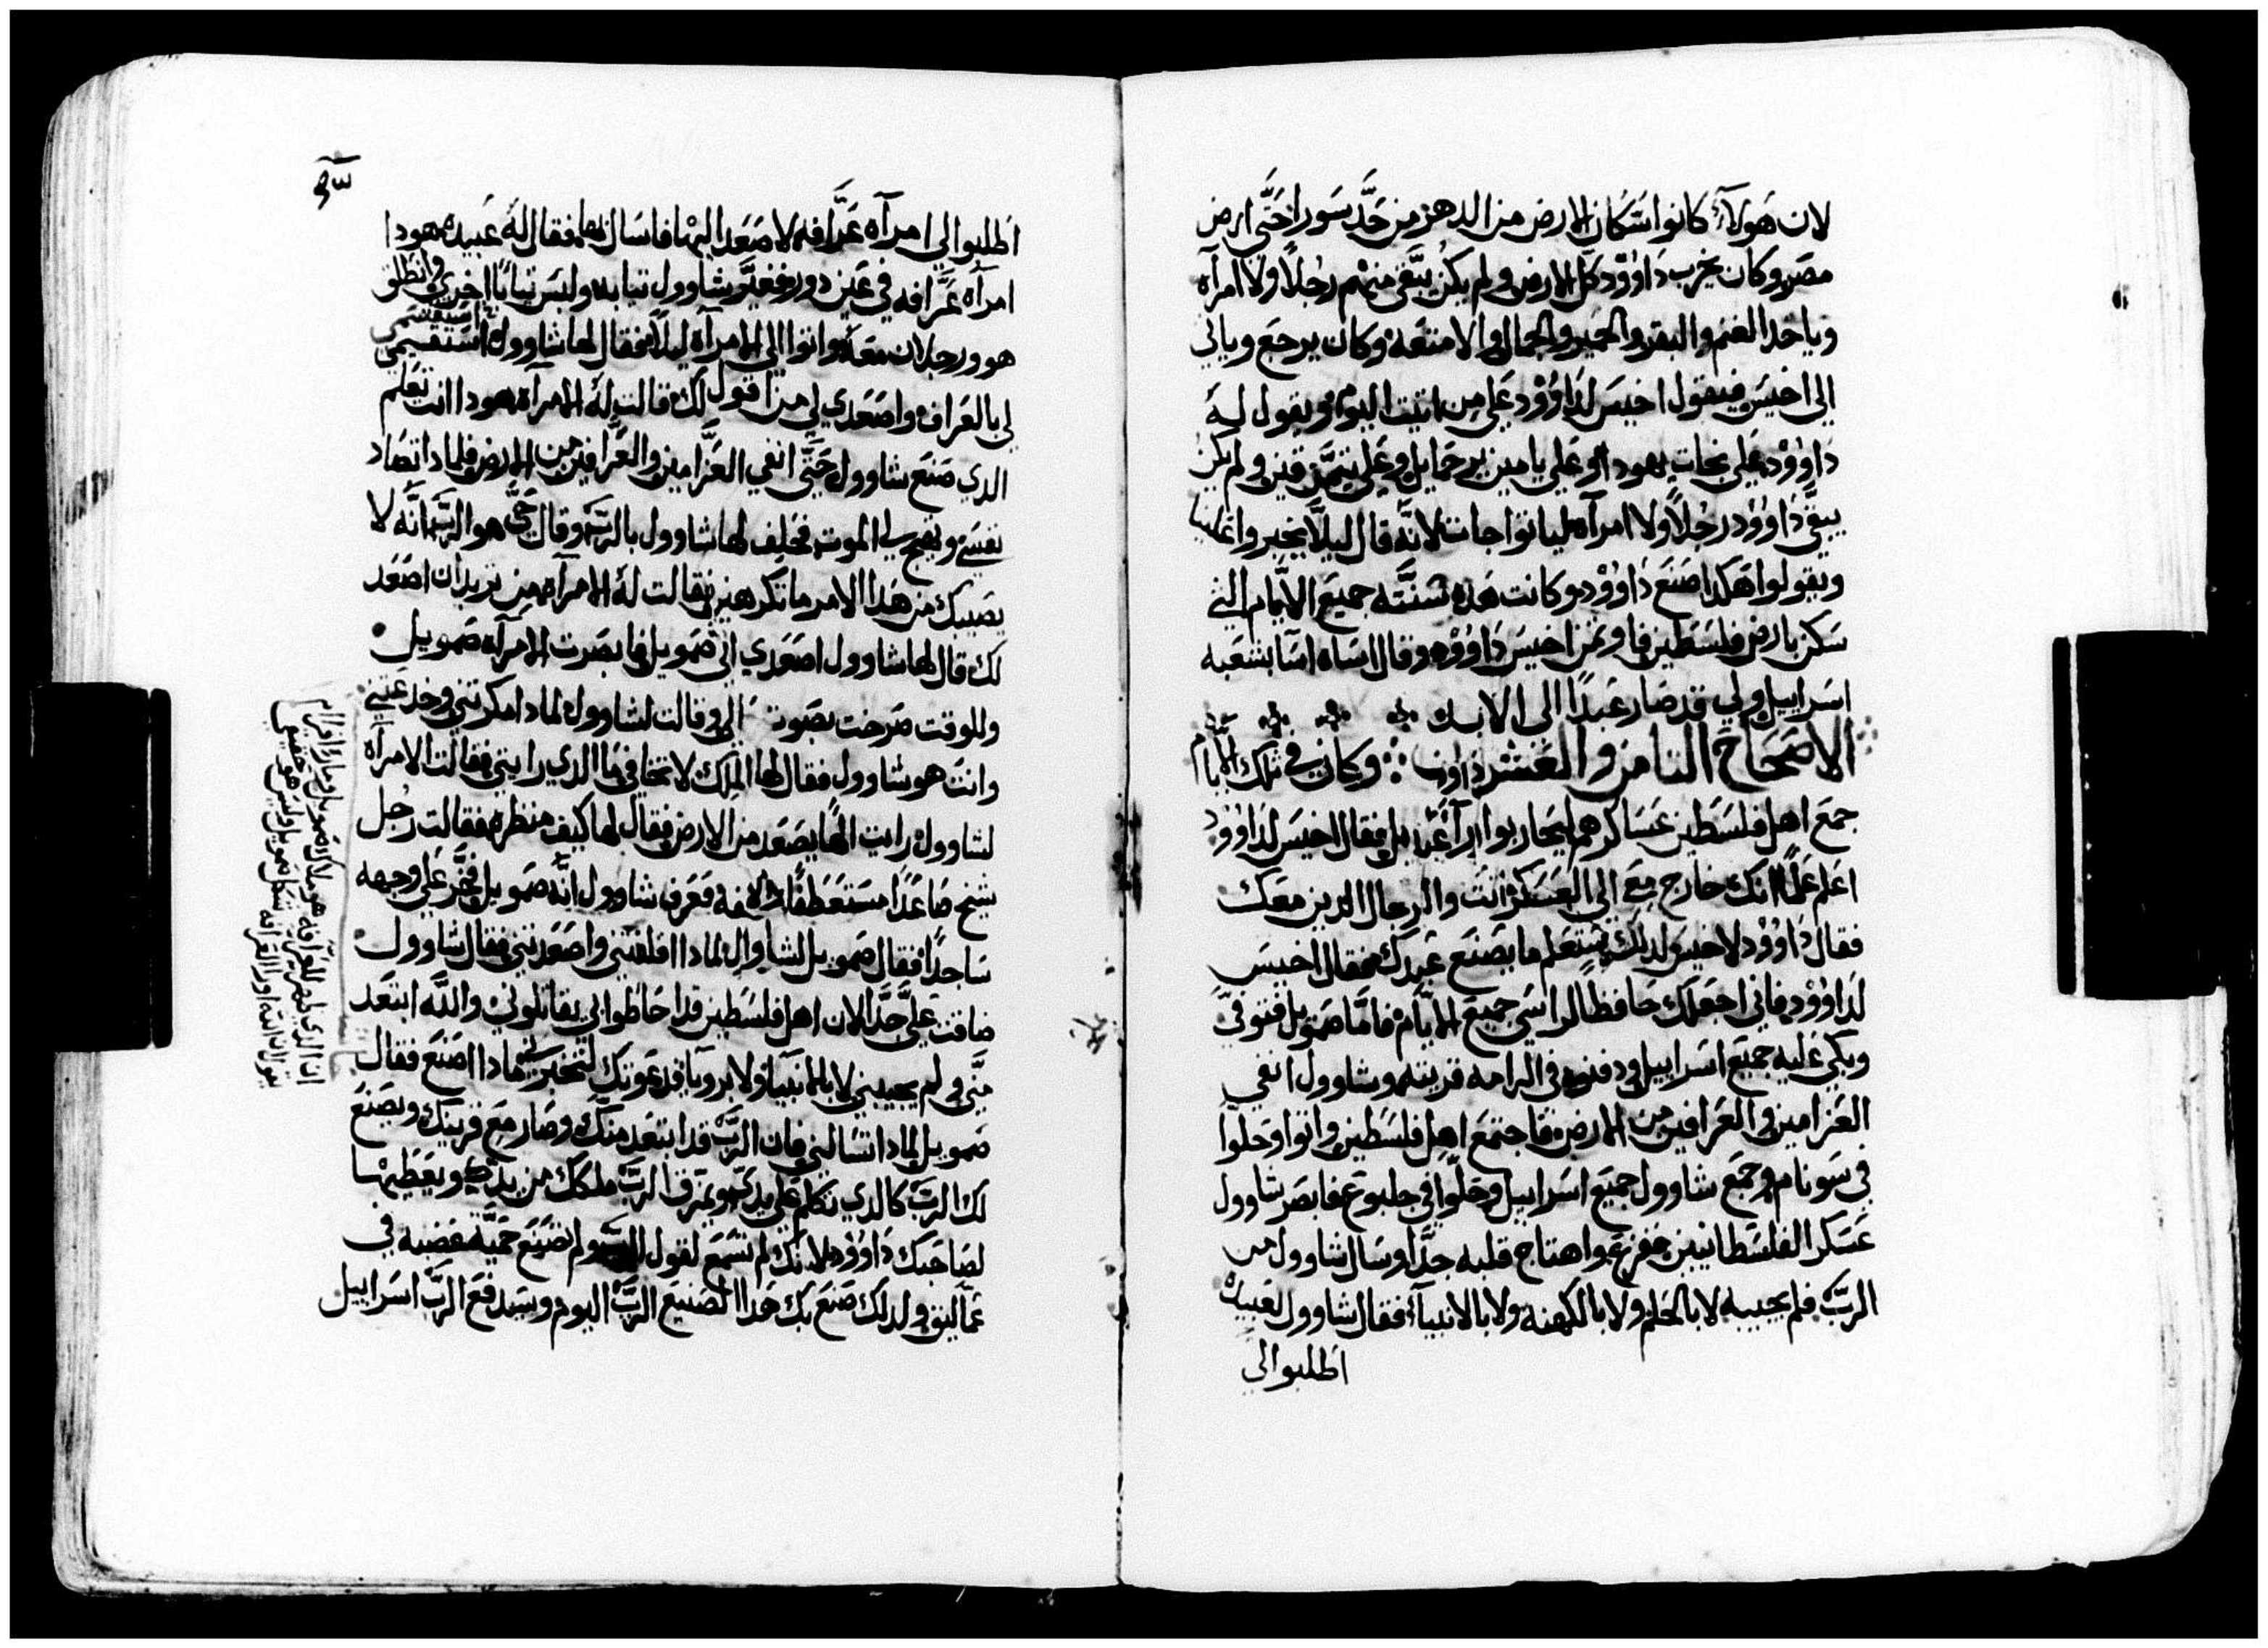 لان هولآء كانوا سكان الارض من الدهر من حد سور احتى ارض
مصر وكان يخرب داوود كل الارض ولم يكن يبقى منهم رجلاً ولا امرآه
وياخد الغنم والبقر والحمير والجمال والامتعه وكان يرجع وياتي
الى اخيس فيقول اخيس لداوود على من اتيت اليوم ويقول له
داوود على نجات يهودا وعلى يامين يرحمايل وعلى تيمن قين ولم يكن
يبقى داوود رجلاً ولا امرآه لياتوا جات لانه قال ليلا يخبروا علينا
ويقولوا هكدا صنع داوود وكانت هده سنته جميع الايام التي
سكن بارض فلسطين فاوتمن اخيس داوود وقال اساه اسآ بشعبه
اسراييل ولي قد صار عبداً الى الابد
الاصحاح التامن والعشرون وكان في تلك الايام
جمع اهل فلسطين عساكرهم ليحاربوا اسراييل فقال اخيس لداوود
اعلم علماً انك خارج مع الى العسكر انت والرجال الدين معك
فقال داوود لاخيس لدلك ستعلم ما يصنع عبدك فقال اخيس
لداوود فاني اجعلك حافظاً لراسي جميع الايام فاما صمويل فتوفي
وبكى عليه جميع اسراييل ودفنوه في الرامه قريته وشاوول انفي
العزامين والعرافين من الارض فاجتمع اهل فلسطين واتوا وحلوا
في سونام وجمع شاوول جميع اسراييل وحلوا في جلبوع فابصر شاوول
عسكر الفلسطانيين ففزع واهتاج قلبه جداً وسال شاوول من
الرب فلم يجيبه لا بالحلم ولا بالكهنة ولا بالانبيآء فقال شاوول لعبيده
اطلبوا لي
اطلبوا لي امرآه عرافه لاصعد اليها فاسال بها فقال له عبيده هودا
امرآه عرافه في عين دور فغير شاوول تيابه ولبس تياباً اخرى وانطلق
هو ورجلان معه واتوا الى الامرآه ليلاً فقال لها شاوول استقسمي
لي بالعراف واصعدي لي من اقول لك قالت له الامرآه هودا انت تعلم
الدي صنع شاوول حتى انفي العزامين والعرافين من الارض فلمادا تصاد
نفسي وتفج لي الموت فحلف لها شاوول بالرب وقال حي هو الرب انه لا
يصيبك من هدا الامر ما تكرهين فقالت له الامرآه من تريد ان اصعد
لك قال لها شاوول اصعدي لي صمويل فابصرت الامرآه صمويل
وللوقت صرخت بصوت عالي وقالت لشاوول لمادا مكرتني وخدعتني
وانت هو شاوول فقال لها الملك لا تخافي ما الدي رايتي فقالت الامرآه
لشاوول رايت الهاً يصعد من الارض فقال لها كيف منظره فقالت رجل
شيخ صاعداً مستعطفاً فعرف شاوول انه صمويل فخر على وجهه
ساجداً فقال صمويل لشاوول لمادا اقلقتني واصعدتني فقال شاوول
ضاقت علي جداً لان اهل فلسطين قد احاطوا بي يقاتلوني والله ابتعد
مني ولم يجيبني لا بالانبيآ ولا برويا فدعوتك لتخبرني مادا اصنع فقال
صمويل لمادا تسالني فان الرب قد ابتعد منك وصار مع قريبك ويصنع
لك الرب كالدي تكلم على يدي ويمزق الرب ملكك من يدك ويعطيها
لصاحبك داوود لانك لم تسمع لقول الرب ولم تصنع حمية غضبه في
عماليق ولدلك صنع بك هدا الصنيع الرب اليوم وسيدفع الرب اسراييل